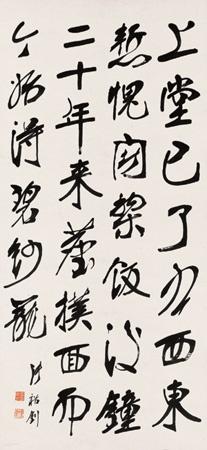 上堂已了各西東
慙愧闍黎飯後鐘
二十年来塵撲面而
今始得碧紗籠
張裕釗